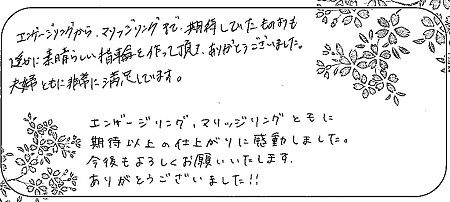 エンゲージリングから、マリッジリングまで、期待していたものよりも
遥かに素晴らしい指輪を作って頂き、ありがとうございました。
夫婦ともに非常に満足しています。
エンゲージリング、マリッジリングともに
期待以上の仕上がりに感動しました。
今後もよろしくお願いいたします。
ありがとうございました!!